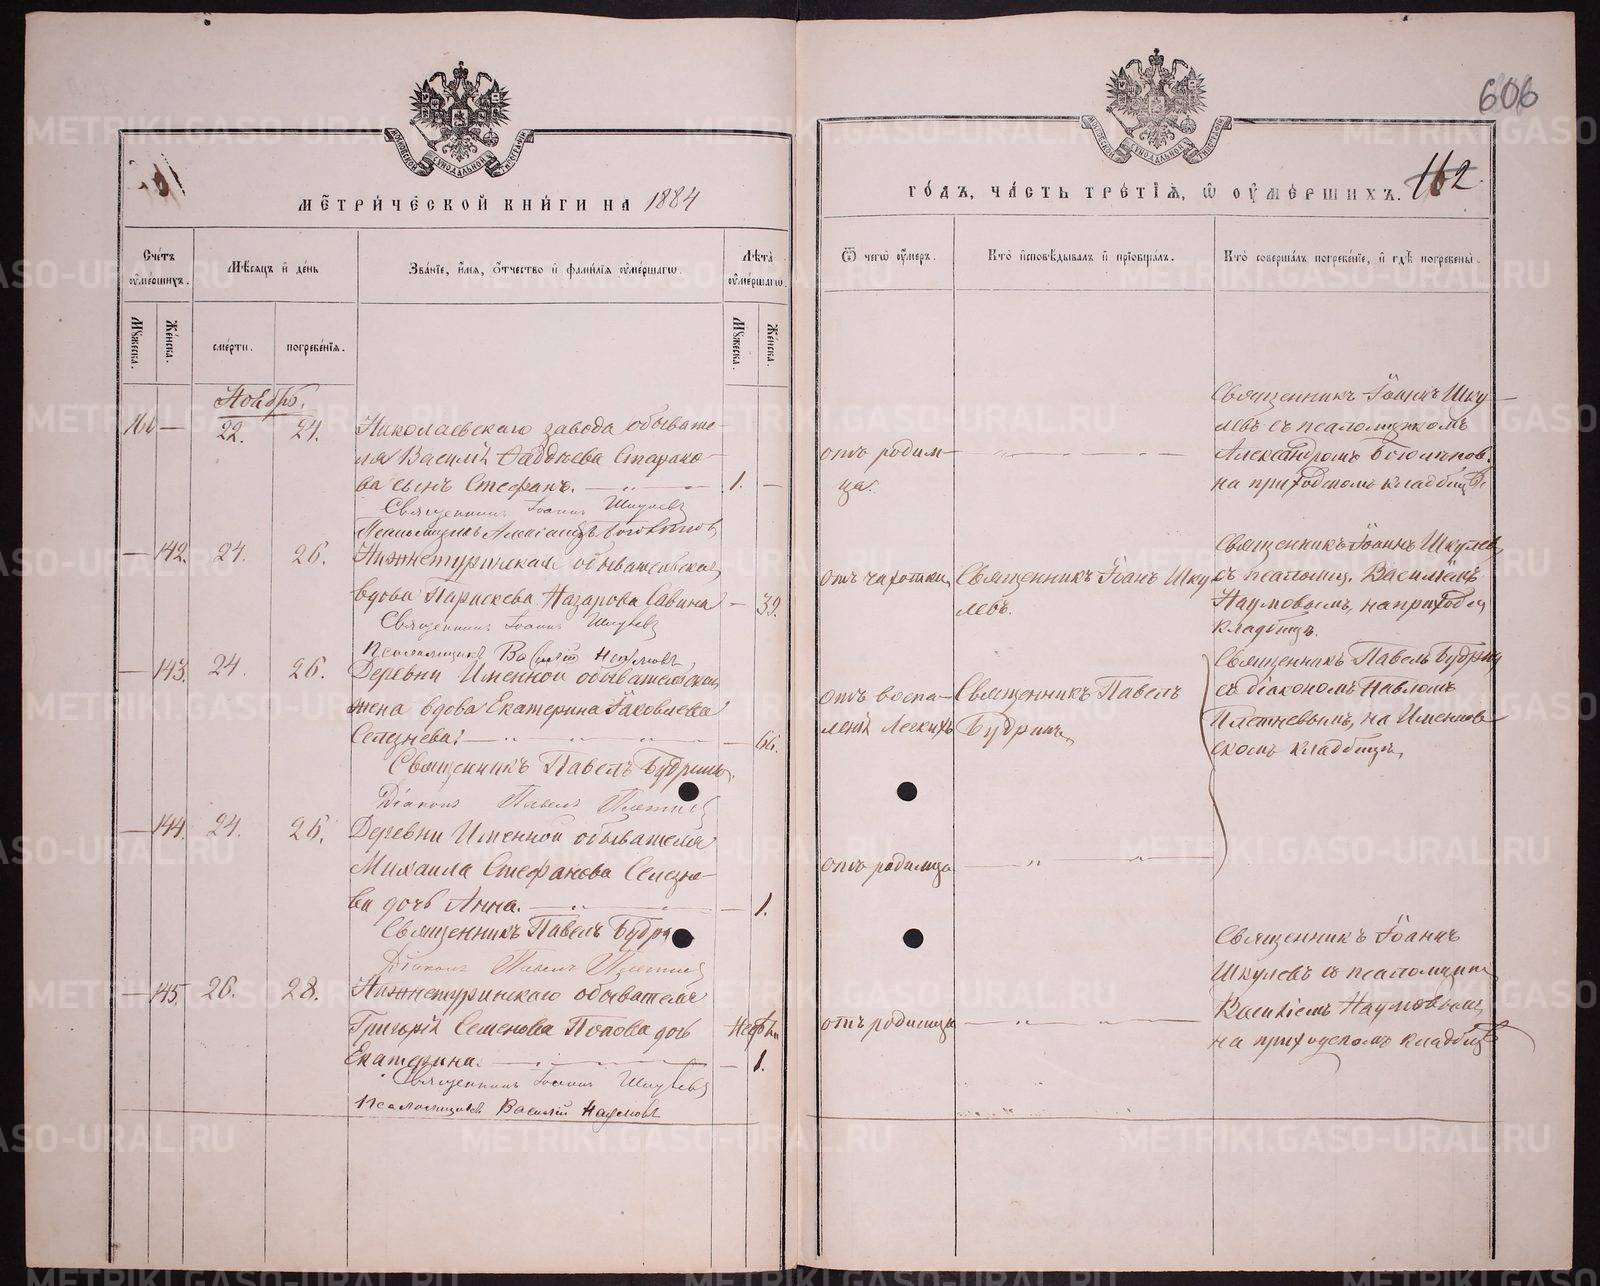 606
МЕТРИЧЕСКОЙ КНИГИ НА 1884
ГОДЪ, ЧАСТЬ ТРЕТІЯ, Ѽ ОУМЕРШИХЪ.
162
Счетъ оумершихъ.
Мѣсяцъ и день
Званіе, имя, отчество и фамилія оумершагѡ.
Лѣта оумершагѡ.
Ѿ чегѡ оумеръ.
Кто исповѣдывалъ и пріобщалъ.
Кто совершалъ погребеніе, и гдѣ погребены.
Мужеска.
Женска.
смерти.
погребенія.
Мужеска.
Женска.
Ноябрь.
161 — 22. 24.
Николаевскаго завода обывате-
ля Василія Фаддѣева Старико-
ва сынъ Стефанъ. 1. —
Священникъ Іоаннъ Шкулевъ
Псаломщикъ Александръ
отъ родим-
ца.
Священникъ Іоаннъ Шку-
левъ съ псаломщикомъ
Александромъ
на приходскомъ кладбищѣ
— 142. 24. 26.
Нижнетуринская обывательская
вдова Параскева Назарова Савина — 39.
Священникъ Іоаннъ Шкулевъ
Псаломщикъ Василій Наумовъ
отъ чахотки
Священникъ Іоанъ Шку-
левъ.
Священникъ Іоаннъ Шкулевъ
съ псаломщ. Василіемъ
Наумовымъ, на приход.
кладбищѣ.
— 143. 24. 26.
Деревни Именной обывательская
жена вдова Екатерина Іаковлева
Селезнева. — 66.
Священникъ Павелъ Будринъ.
Діаконъ Павелъ Плетневъ
отъ воспа-
ленія легкихъ
Священникъ Павелъ
Будринъ
Священникъ Павелъ Будринъ
съ діакономъ Павломъ
Плетневымъ, на Именнов-
скомъ кладбищѣ
— 144. 24. 26.
Деревни Именной обывателя
Михаила Стефанова Селезне-
ва дочь Анна. — 1.
Священникъ Павелъ
Діаконъ Павелъ Плетневъ
отъ родимца
— 145. 26. 28.
Нижнетуринскаго обывателя
Григорія Семенова Попова дочь
Екатерина. — 1.
Священникъ Іоаннъ Шкулевъ
Псаломщикъ Василій Наумовъ
отъ родимца
Священникъ Іоаннъ
Шкулевъ съ псаломщик.
Василіемъ Наумовымъ
на приходскомъ кладбищѣ
METRIKI.GASO-URAL.RU